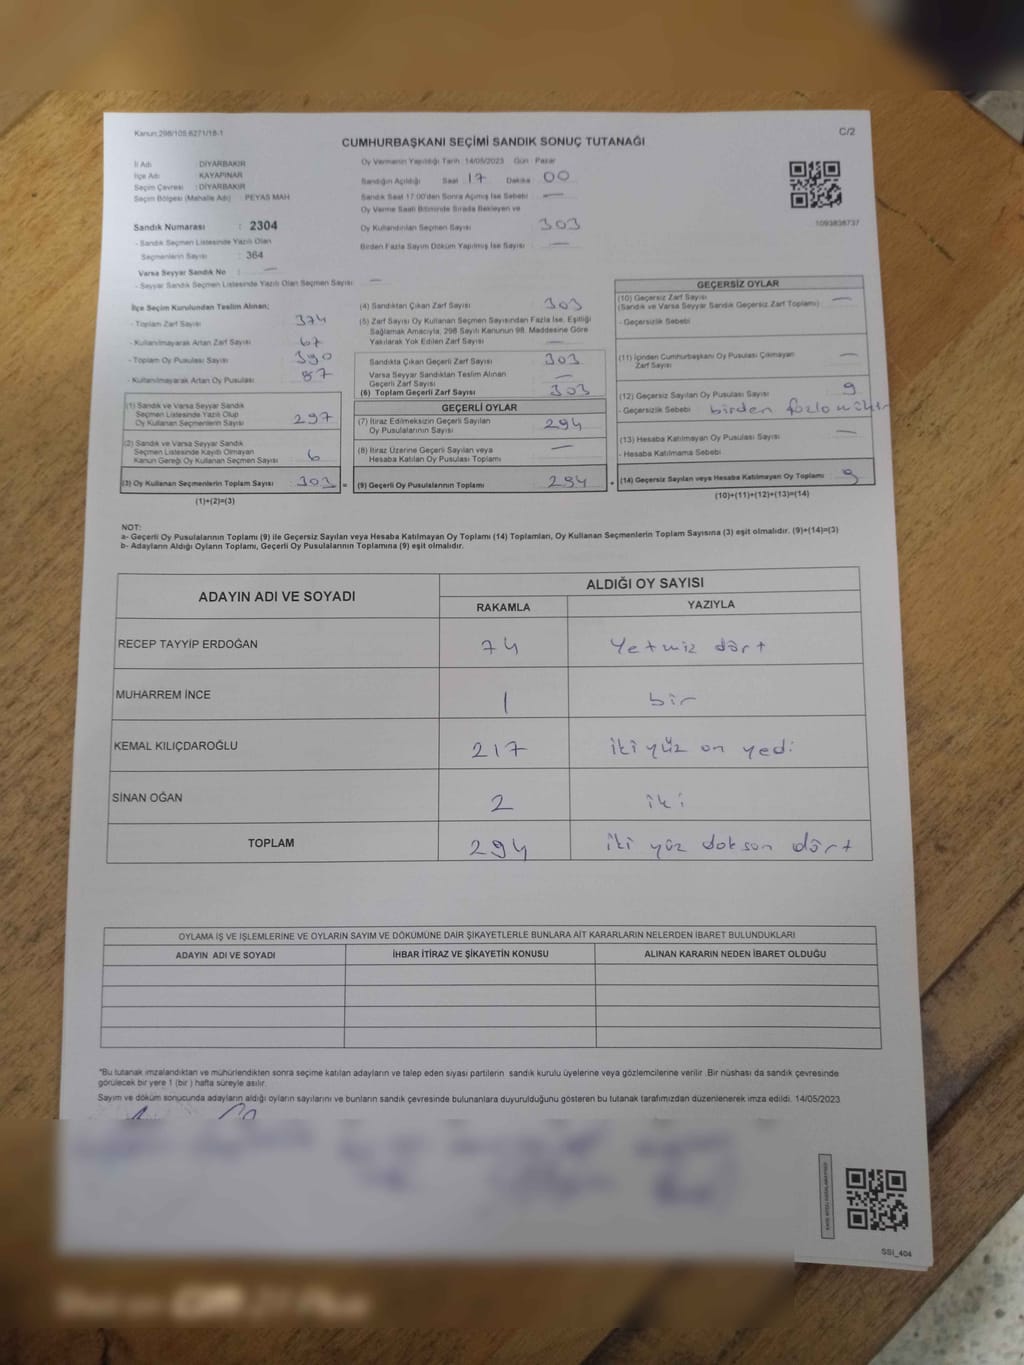 Kanun:298/105,6271/18-1
C/2
CUMHURBAŞKANI SEÇİMİ SANDIK SONUÇ TUTANAĞI
İl Adı : DİYARBAKIR
İlçe Adı : KAYAPINAR
Seçim Çevresi : DİYARBAKIR
Seçim Bölgesi (Mahalle Adı) PEYAS MAH
Sandık Numarası : 2304
- Sandık Seçmen Listesinde Yazılı Olan
Seçmenlerin Sayısı : 364
Varsa Seyyar Sandık No : —
- Seyyar Sandık Seçmen Listesinde Yazılı Olan Seçmen Sayısı —
Oy Vermenin Yapıldığı Tarih :14/05/2023 Gün : Pazar
Sandığın Açıldığı Saat 17 Dakika 00
Sandık Saat 17:00'den Sonra Açılmış İse Sebebi —
Oy Verme Saati Bitiminde Sırada Bekleyen ve
Oy Kullandırılan Seçmen Sayısı 303
Birden Fazla Sayım Döküm Yapılmış İse Sayısı —
1093836737
İlçe Seçim Kurulundan Teslim Alınan;
- Toplam Zarf Sayısı 374
- Kullanılmayarak Artan Zarf Sayısı 67
- Toplam Oy Pusulası Sayısı 390
- Kullanılmayarak Artan Oy Pusulası 87
(1) Sandık ve Varsa Seyyar Sandık
Seçmen Listesinde Yazılı Olup
Oy Kullanan Seçmenlerin Sayısı 297
(2) Sandık ve Varsa Seyyar Sandık
Seçmen Listesinde Kayıtlı Olmayan
Kanun Gereği Oy Kullanan Seçmen Sayısı 6
(3) Oy Kullanan Seçmenlerin Toplam Sayısı 303 =
(1)+(2)=(3)
(4) Sandıktan Çıkan Zarf Sayısı 303
(5) Zarf Sayısı Oy Kullanan Seçmen Sayısından Fazla İse, Eşitliği
Sağlamak Amacıyla, 298 Sayılı Kanunun 98. Maddesine Göre
Yakılarak Yok Edilen Zarf Sayısı —
Sandıkta Çıkan Geçerli Zarf Sayısı 303
Varsa Seyyar Sandıktan Teslim Alınan
Geçerli Zarf Sayısı —
(6) Toplam Geçerli Zarf Sayısı 303
GEÇERLİ OYLAR
(7) İtiraz Edilmeksizin Geçerli Sayılan
Oy Pusulalarının Sayısı 294
(8) İtiraz Üzerine Geçerli Sayılan veya
Hesaba Katılan Oy Pusulası Toplamı —
(9) Geçerli Oy Pusulalarının Toplamı 294 +
GEÇERSİZ OYLAR
(10) Geçersiz Zarf Sayısı —
(Sandık ve Varsa Seyyar Sandık Geçersiz Zarf Toplamı)
- Geçersizlik Sebebi
(11) İçinden Cumhurbaşkanı Oy Pusulası Çıkmayan
Zarf Sayısı —
(12) Geçersiz Sayılan Oy Pusulası Sayısı 9
- Geçersizlik Sebebi birden fazla mühür
(13) Hesaba Katılmayan Oy Pusulası Sayısı —
- Hesaba Katılmama Sebebi
(14) Geçersiz Sayılan veya Hesaba Katılmayan Oy Toplamı 9
(10)+(11)+(12)+(13)=(14)
NOT:
a- Geçerli Oy Pusulalarının Toplamı (9) ile Geçersiz Sayılan veya Hesaba Katılmayan Oy Toplamı (14) Toplamları, Oy Kullanan Seçmenlerin Toplam Sayısına (3) eşit olmalıdır. (9)+(14)=(3)
b- Adayların Aldığı Oyların Toplamı, Geçerli Oy Pusulalarının Toplamına (9) eşit olmalıdır.
ADAYIN ADI VE SOYADI
ALDIĞI OY SAYISI
RAKAMLA YAZIYLA
RECEP TAYYİP ERDOĞAN 74 Yetmiz dört
MUHARREM İNCE 1 bir
KEMAL KILIÇDAROĞLU 217 iki yüz on yedi
SİNAN OĞAN 2 iki
TOPLAM 294 iki yüz doksan dört
OYLAMA İŞ VE İŞLEMLERİNE VE OYLARIN SAYIM VE DÖKÜMÜNE DAİR ŞİKAYETLERLE BUNLARA AİT KARARLARIN NELERDEN İBARET BULUNDUKLARI
ADAYIN ADI VE SOYADI İHBAR İTİRAZ VE ŞİKAYETİN KONUSU ALINAN KARARIN NEDEN İBARET OLDUĞU
*Bu tutanak imzalandıktan ve mühürlendikten sonra seçime katılan adayların ve talep eden siyasi partilerin sandık kurulu üyelerine veya gözlemcilerine verilir .Bir nüshası da sandık çevresinde
görülecek bir yere 1 (bir ) hafta süreyle asılır.
Sayım ve döküm sonucunda adayların aldığı oyların sayılarını ve bunların sandık çevresinde bulunanlara duyurulduğunu gösteren bu tutanak tarafımızdan düzenlenerek imza edildi. 14/05/2023
SSI_404